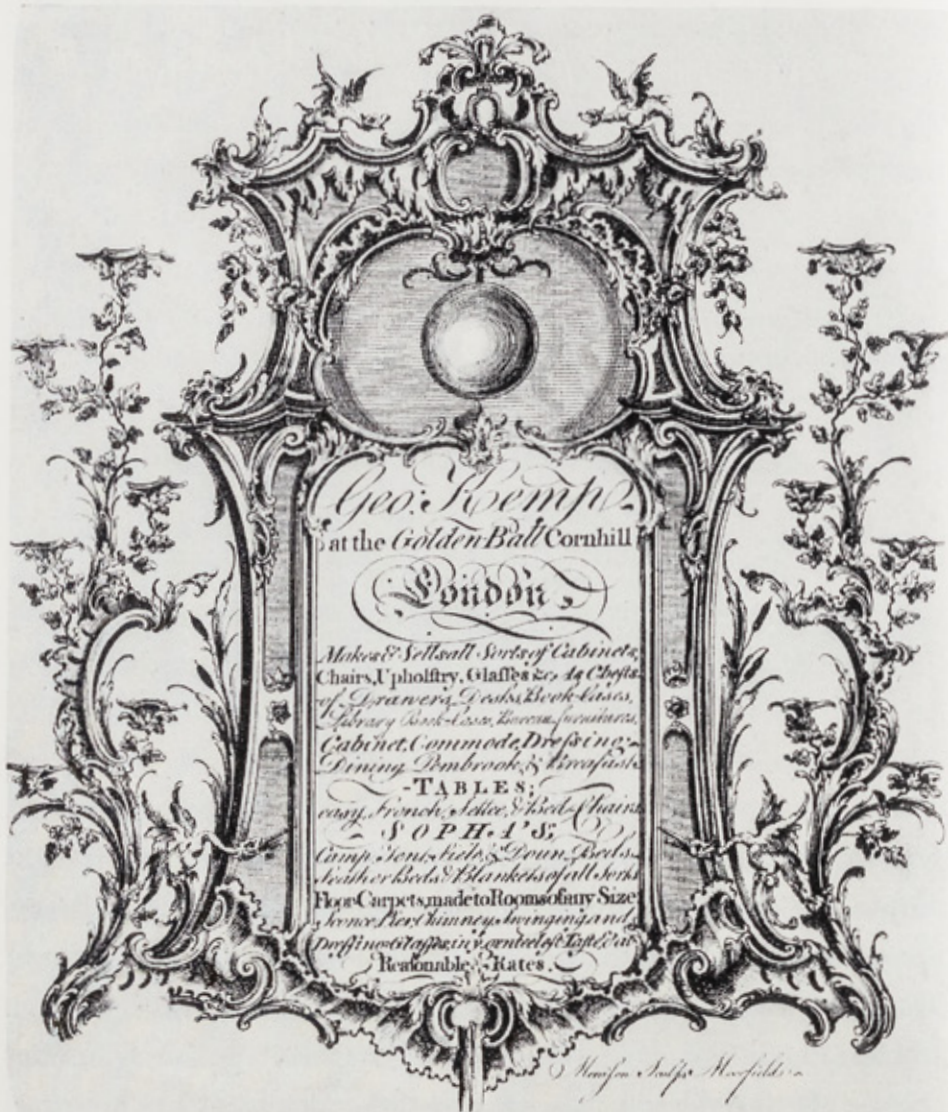 Geo. Kemp
at the Golden Ball Cornhill
London,
Makes & Sells all Sorts of Cabinets,
Chairs, Upholstry, Glasses &c, As Chests
of Drawers, Desks, Book-Cases,
Library Book-Cases, Bureau furnitures,
Cabinet, Commode, Dressing-
Dining Pembrook, & Breafast
-TABLES;
easy, French, Settee, & Bed-Chairs
SOPHA'S;
Camp, Tent, Field, & Down Beds
Feather Beds & Blankets of all Sorts
Floor Carpets, made to Rooms of any Size
Sconce, Pier, Chimney Swinging and
Dressing-Glasses, in y. genteelest Taste, & at
Reasonable Rates.
Sculpt Moorfields